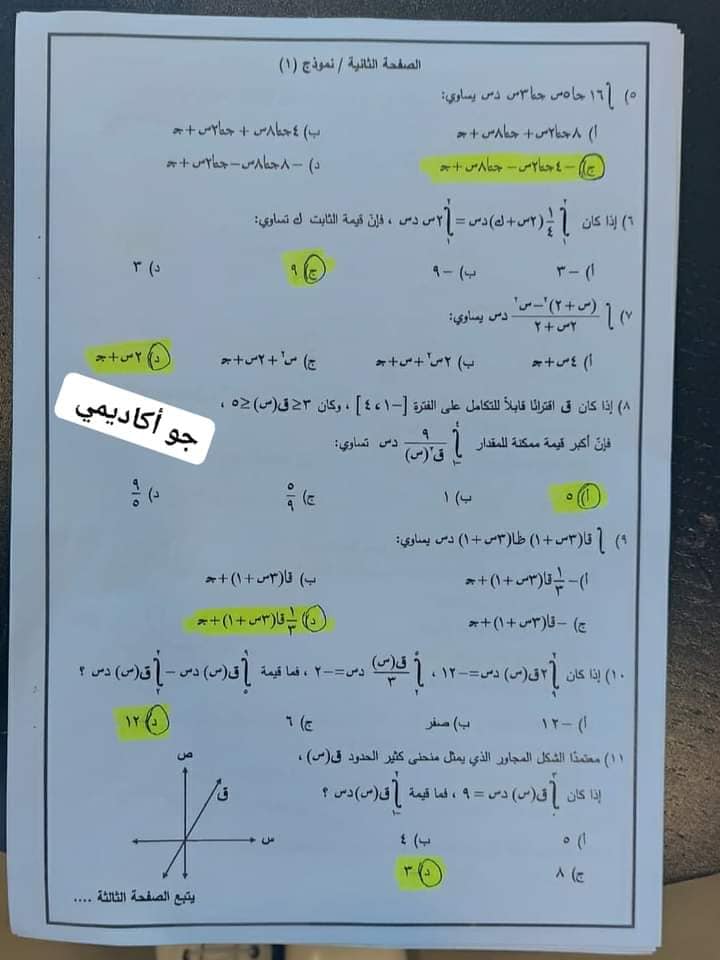 الصفحة الثانية / نموذج (١)
٥) ∫ ١٦ جا٥س جتا٣س دس يساوي:
أ) ٨جتا٢س + جتا٨س + جـ ب) ٤جتا٨س + جتا٢س + جـ
ج) -٤جتا٢س - جتا٨س + جـ د) -٨جتا٨س - جتا٢س + جـ
٦) إذا كان ∫ ١/٤ (٢س + ك) دس = ∫ ٢س دس ، فإنّ قيمة الثابت ك تساوي:
أ) -٣ ب) -٩ ج) ٩ د) ٣
٧) ∫ ((س + ٢)² - س²)/(٢س + ٢) دس يساوي:
أ) ٤س + جـ ب) ٢س² + س + جـ ج) س² + ٢س + جـ د) ٢س + جـ
جو أكاديمي
٨) إذا كان ق اقترانًا قابلاً للتكامل على الفترة [-١، ٤] ، وكان ٣ ≤ ق(س) ≤ ٥ ،
فإنّ أكبر قيمة ممكنة للمقدار ∫ ٩/ق²(س) دس تساوي:
أ) ٥ ب) ١ ج) ٥/٩ د) ٩/٥
٩) ∫ قا(٣س + ١) ظا(٣س + ١) دس يساوي:
أ) -١/٣ قا(٣س + ١) + جـ ب) قا(٣س + ١) + جـ
ج) -قا(٣س + ١) + جـ د) ١/٣ قا(٣س + ١) + جـ
١٠) إذا كان ∫ ٢ق(س) دس = -١٢ ، ∫ ق(س)/٣ دس = -٢ ، فما قيمة ∫ ق(س) دس - ∫ ق(س) دس ؟
أ) -١٢ ب) صفر ج) ٦ د) ١٢
١١) معتمدًا الشكل المجاور الذي يمثل منحنى كثير الحدود ق(س) ،
إذا كان ∫ ق(س) دس = ٩ ، فما قيمة ∫ ق(س) دس ؟
أ) ٥ ب) ٤
ج) ٨ د) ٣
ص
ق
س
يتبع الصفحة الثالثة ....